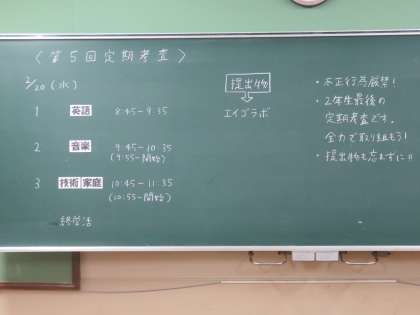 〈第5回定期考査〉
2/20(水)
1 英語 8:45-9:35
2 音楽 9:45-10:35
(9:55-開始)
3 技術 家庭 10:45-11:35
(10:55-開始)
終学活
提出物
エイゴラボ
・不正行為厳禁!
・2年生最後の
定期考査です。
全力で取り組もう!
・提出物も忘れずに!!